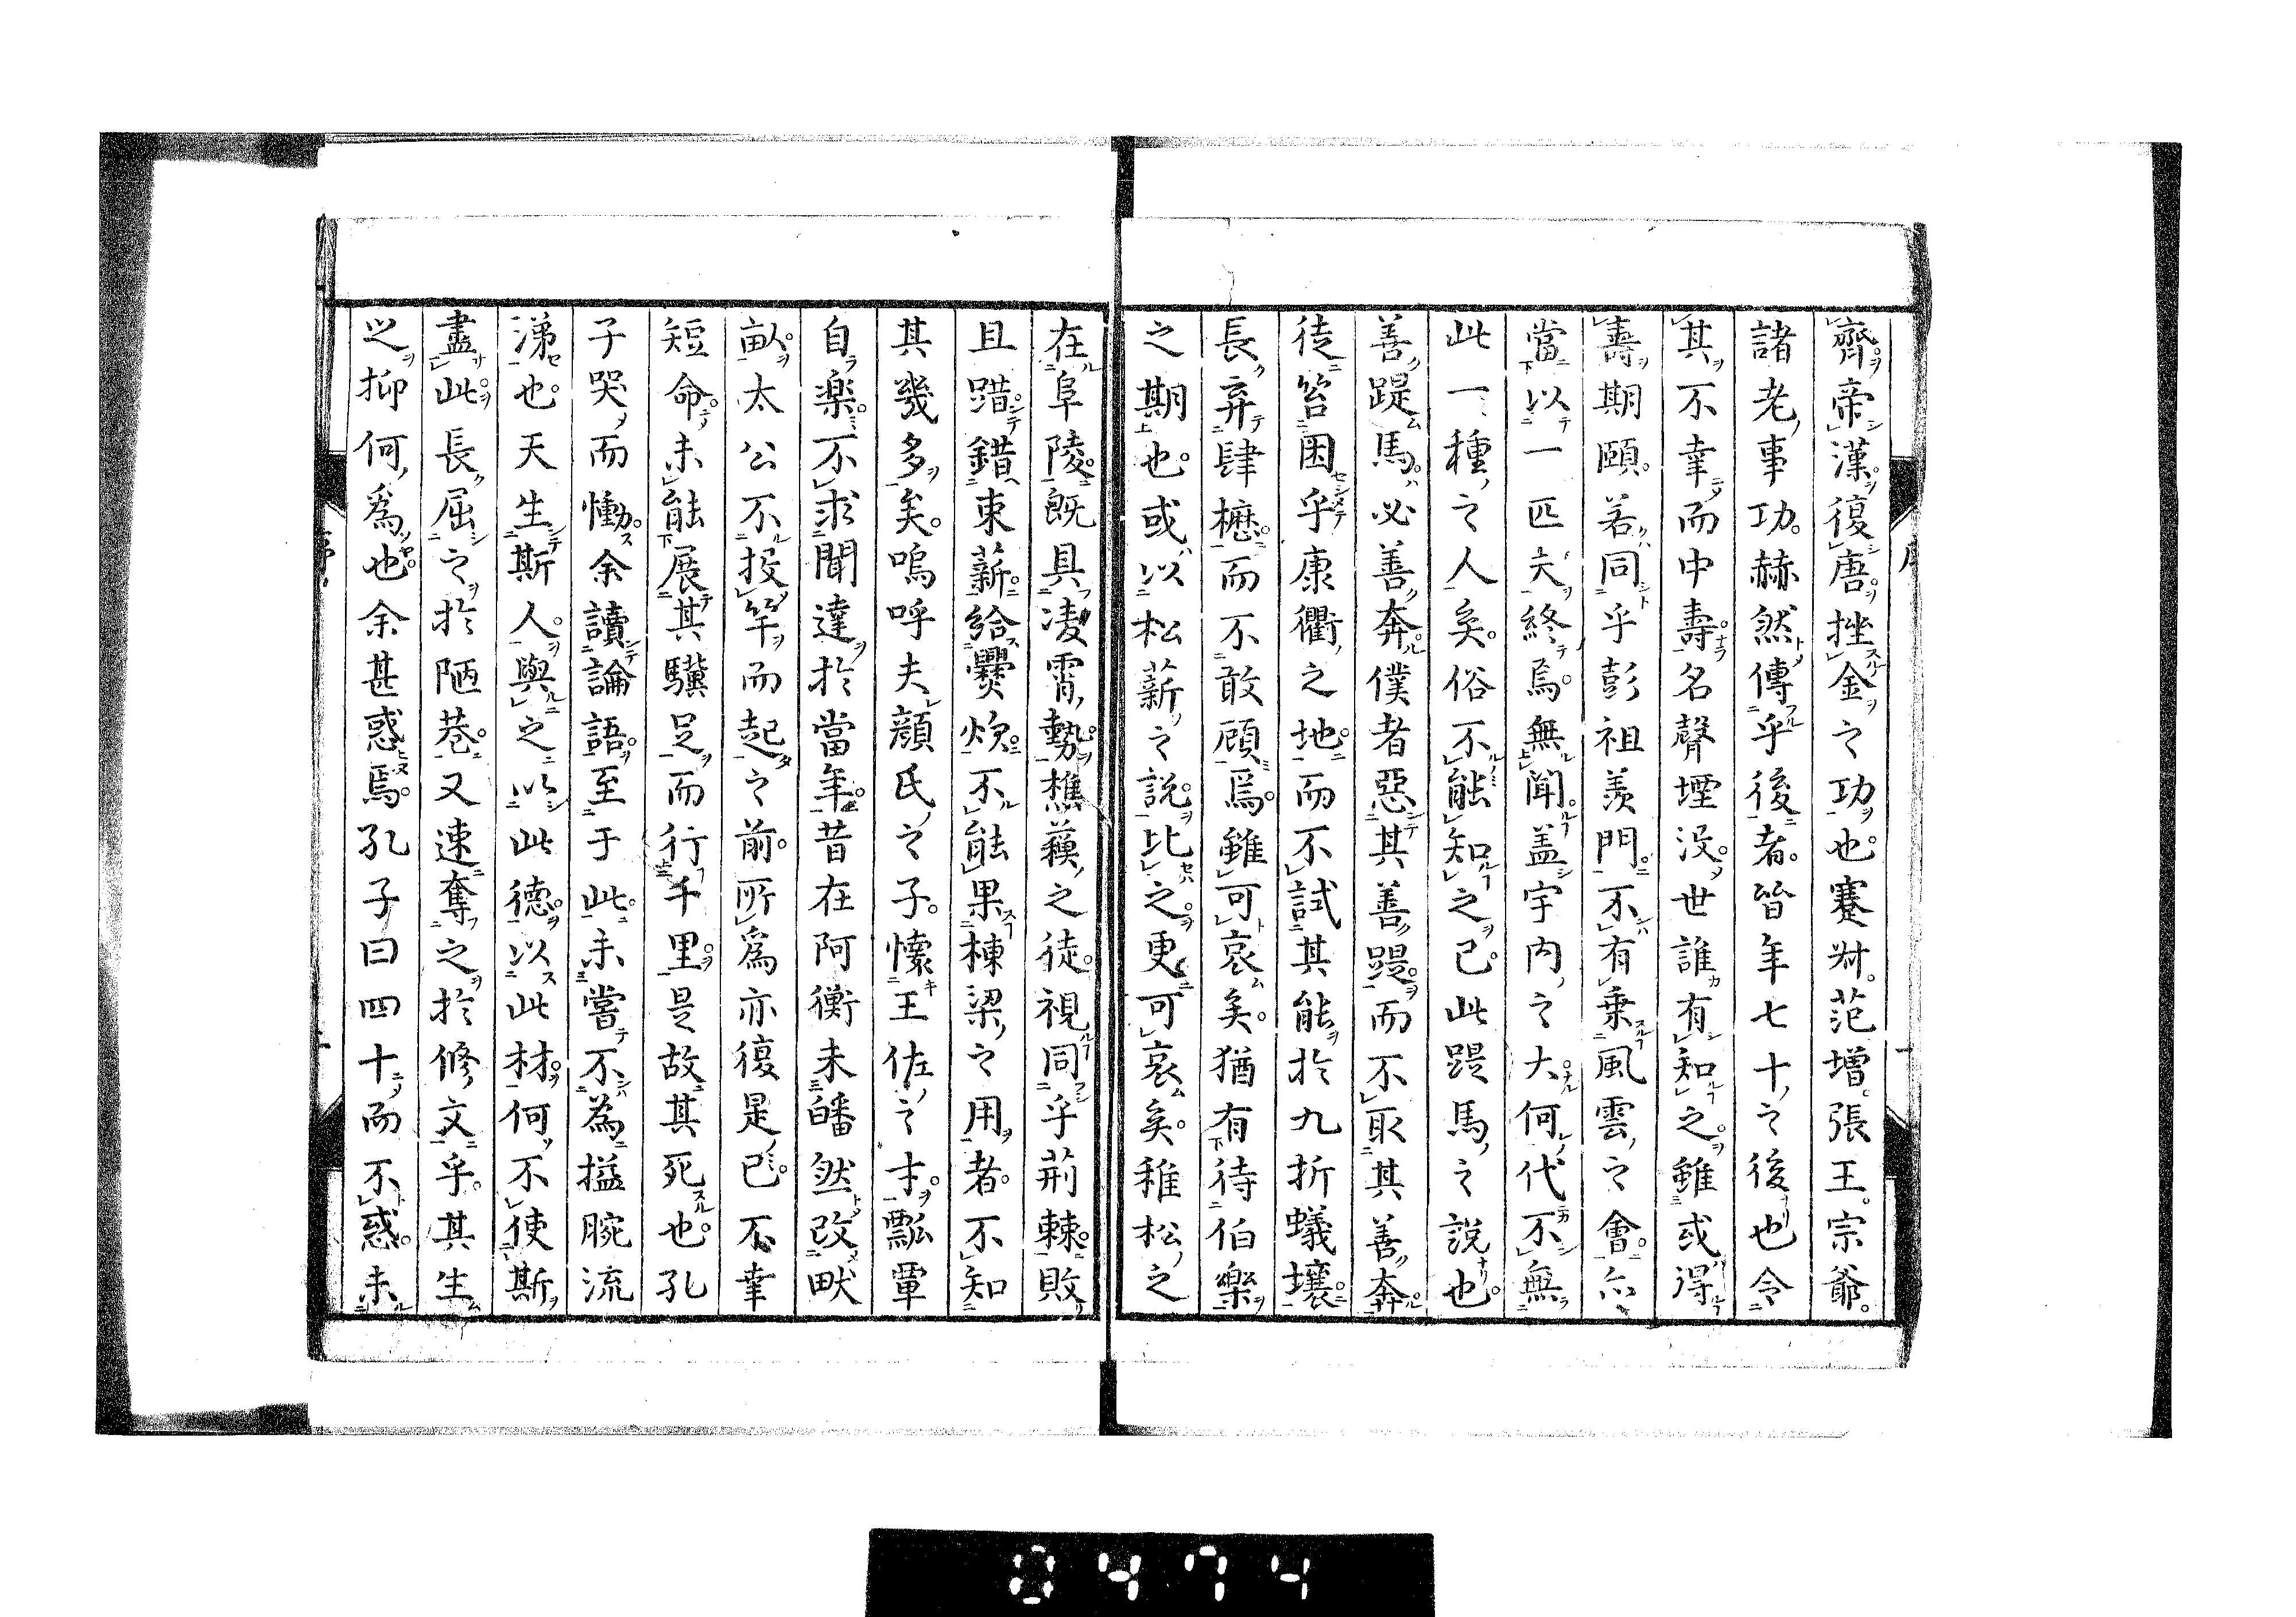 齊帝漢復唐挫金之功也蹇叔范增張王宗爺
諸老事功赫然傳乎後者皆年七十之後也令
其不幸而中壽名聲堙没世誰有知之雖或得
壽期頤若同乎彭祖羨門不有乗風雲之會亦
當以一匹夫終焉無聞盖宇内之大何代不無
此一種之人矣俗不能知之已此踶馬之説也
善踶馬必善奔僕者惡其善踶而不取其善奔
徒笞困乎康衢之地而不試其能於九折蟻壤
長弃肆櫪而不敢顧焉雖可哀矣猶有待伯樂
之期也或以松薪之説比之更可哀矣稚松之
在阜陵既具凌霄勢樵蘇之徒視同乎荊棘敗
且踖錯束薪給爨炊不能果棟梁之用者不知
其幾多矣嗚呼夫顔氏之子懐王佐之才瓢簞
自楽不求聞達於當年昔在阿衡未皤然改畎
畝太公不投竿而起之前所為亦復是已不幸
短命未能展其驥足而行千里是故其死也孔
子哭而慟余讀論語至于此未嘗不為搤腕流
涕也天生斯人與之以此德以此材何不使斯
盡此長屈之於陋巷又速奪之於修文乎其生
之抑何為也余甚惑焉孔子曰四十而不惑未
0474